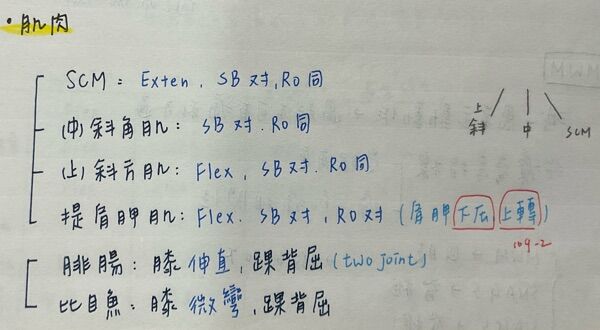 • 肌肉
SCM : Exten , SB 对 , Ro 同
(中) 斜角肌 : SB 对 . Ro 同
(上) 斜方肌 : Flex , SB 对 . Ro 同
提肩胛肌 : Flex . SB 对 , Ro 对 (肩胛下压 上轉)
109-2
腓腸 : 膝伸直 , 踝背屈 (two joint)
比目魚 : 膝微彎 , 踝背屈
上斜 中 SCM